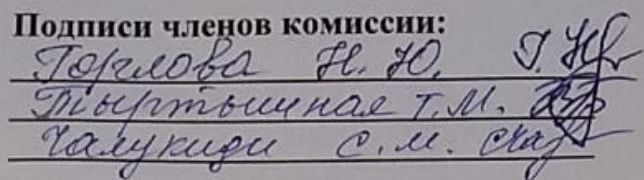 Подписи членов комиссии:
Горглова Н. Ю.
Тыртышная Т.М.
Чалукиди С.М.